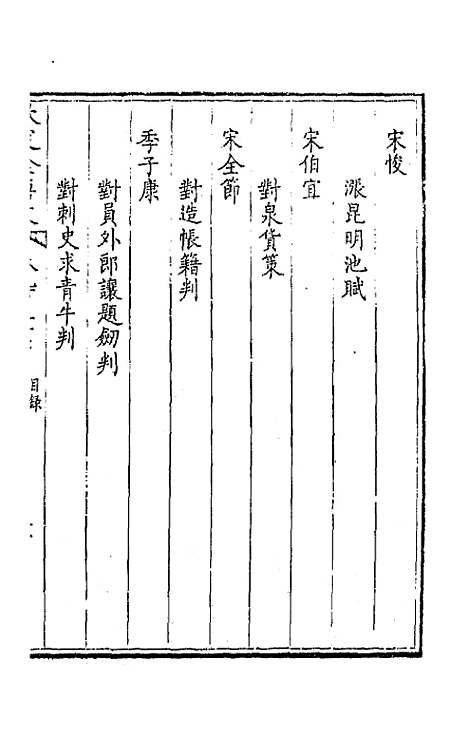 宋悛
漲昆明池賦
宋伯宜
對泉貨策
宋全節
對造帳籍判
季子康
對員外郎讓題劒判
對刺史求青牛判
目錄